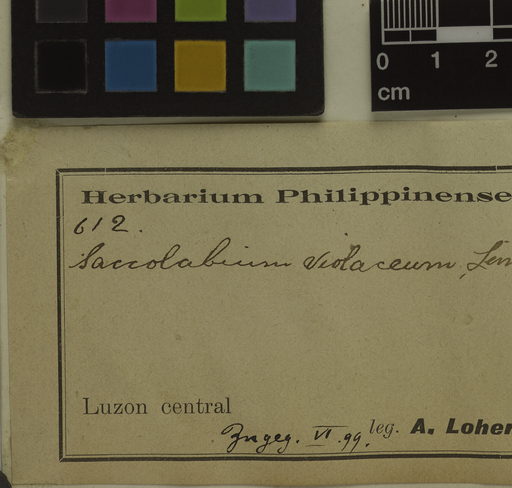 0 1 2
cm
Herbarium Philippinense
612.
Saccolabium violaceum, Lin
Luzon central
leg. A. Loher
VI. 99.